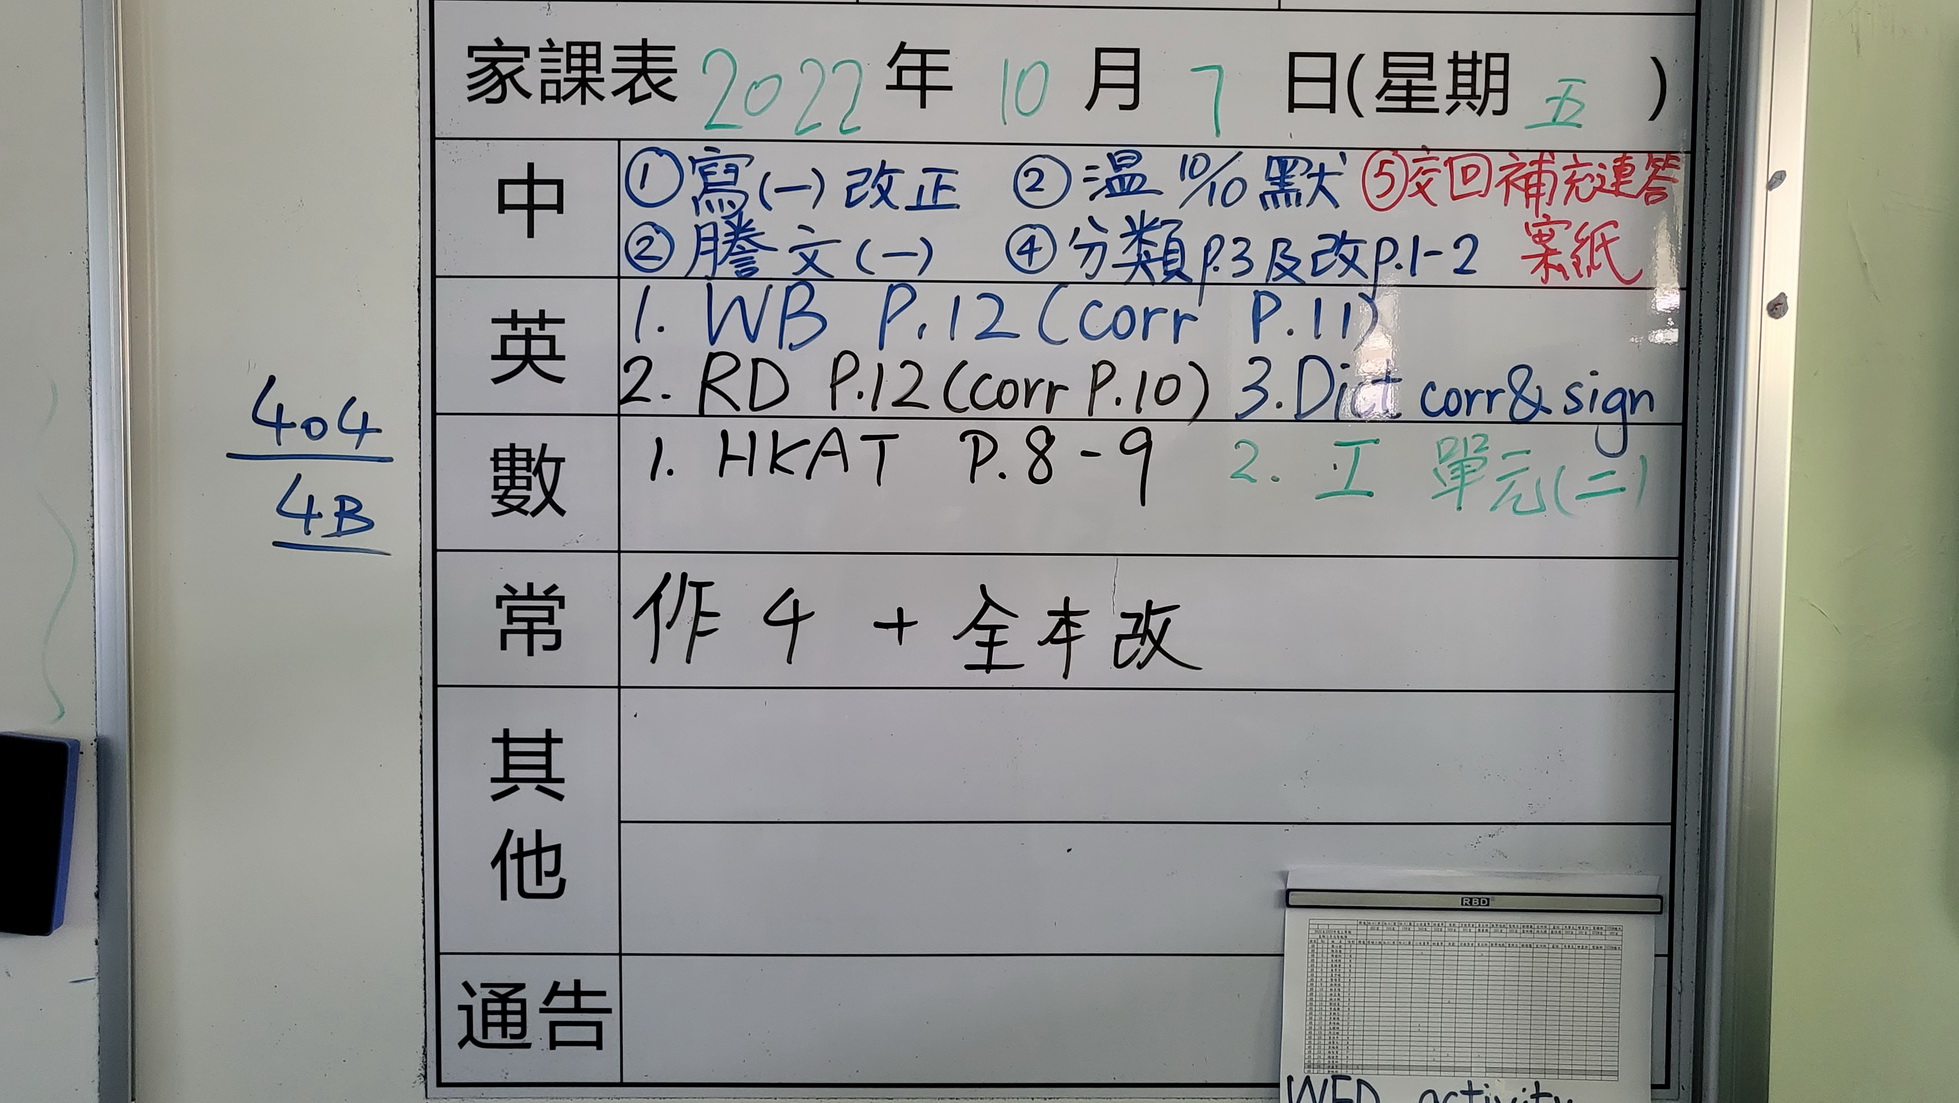 家課表 2022 年 10 月 7 日(星期 五 )
中
①寫(一)改正 ②温 10/10 默 ⑤交回補充連答
②謄文(一) ④分類p.3及改p.1-2 案紙
英
1. WB P.12(corr P.11)
2. RD P.12(corr P.10) 3.Dict corr& sign
數
1. HKAT P.8-9 2. 工 單元(二)
常
作 4 + 全本改
其
他
通告
404
4B
RBD
WED activity